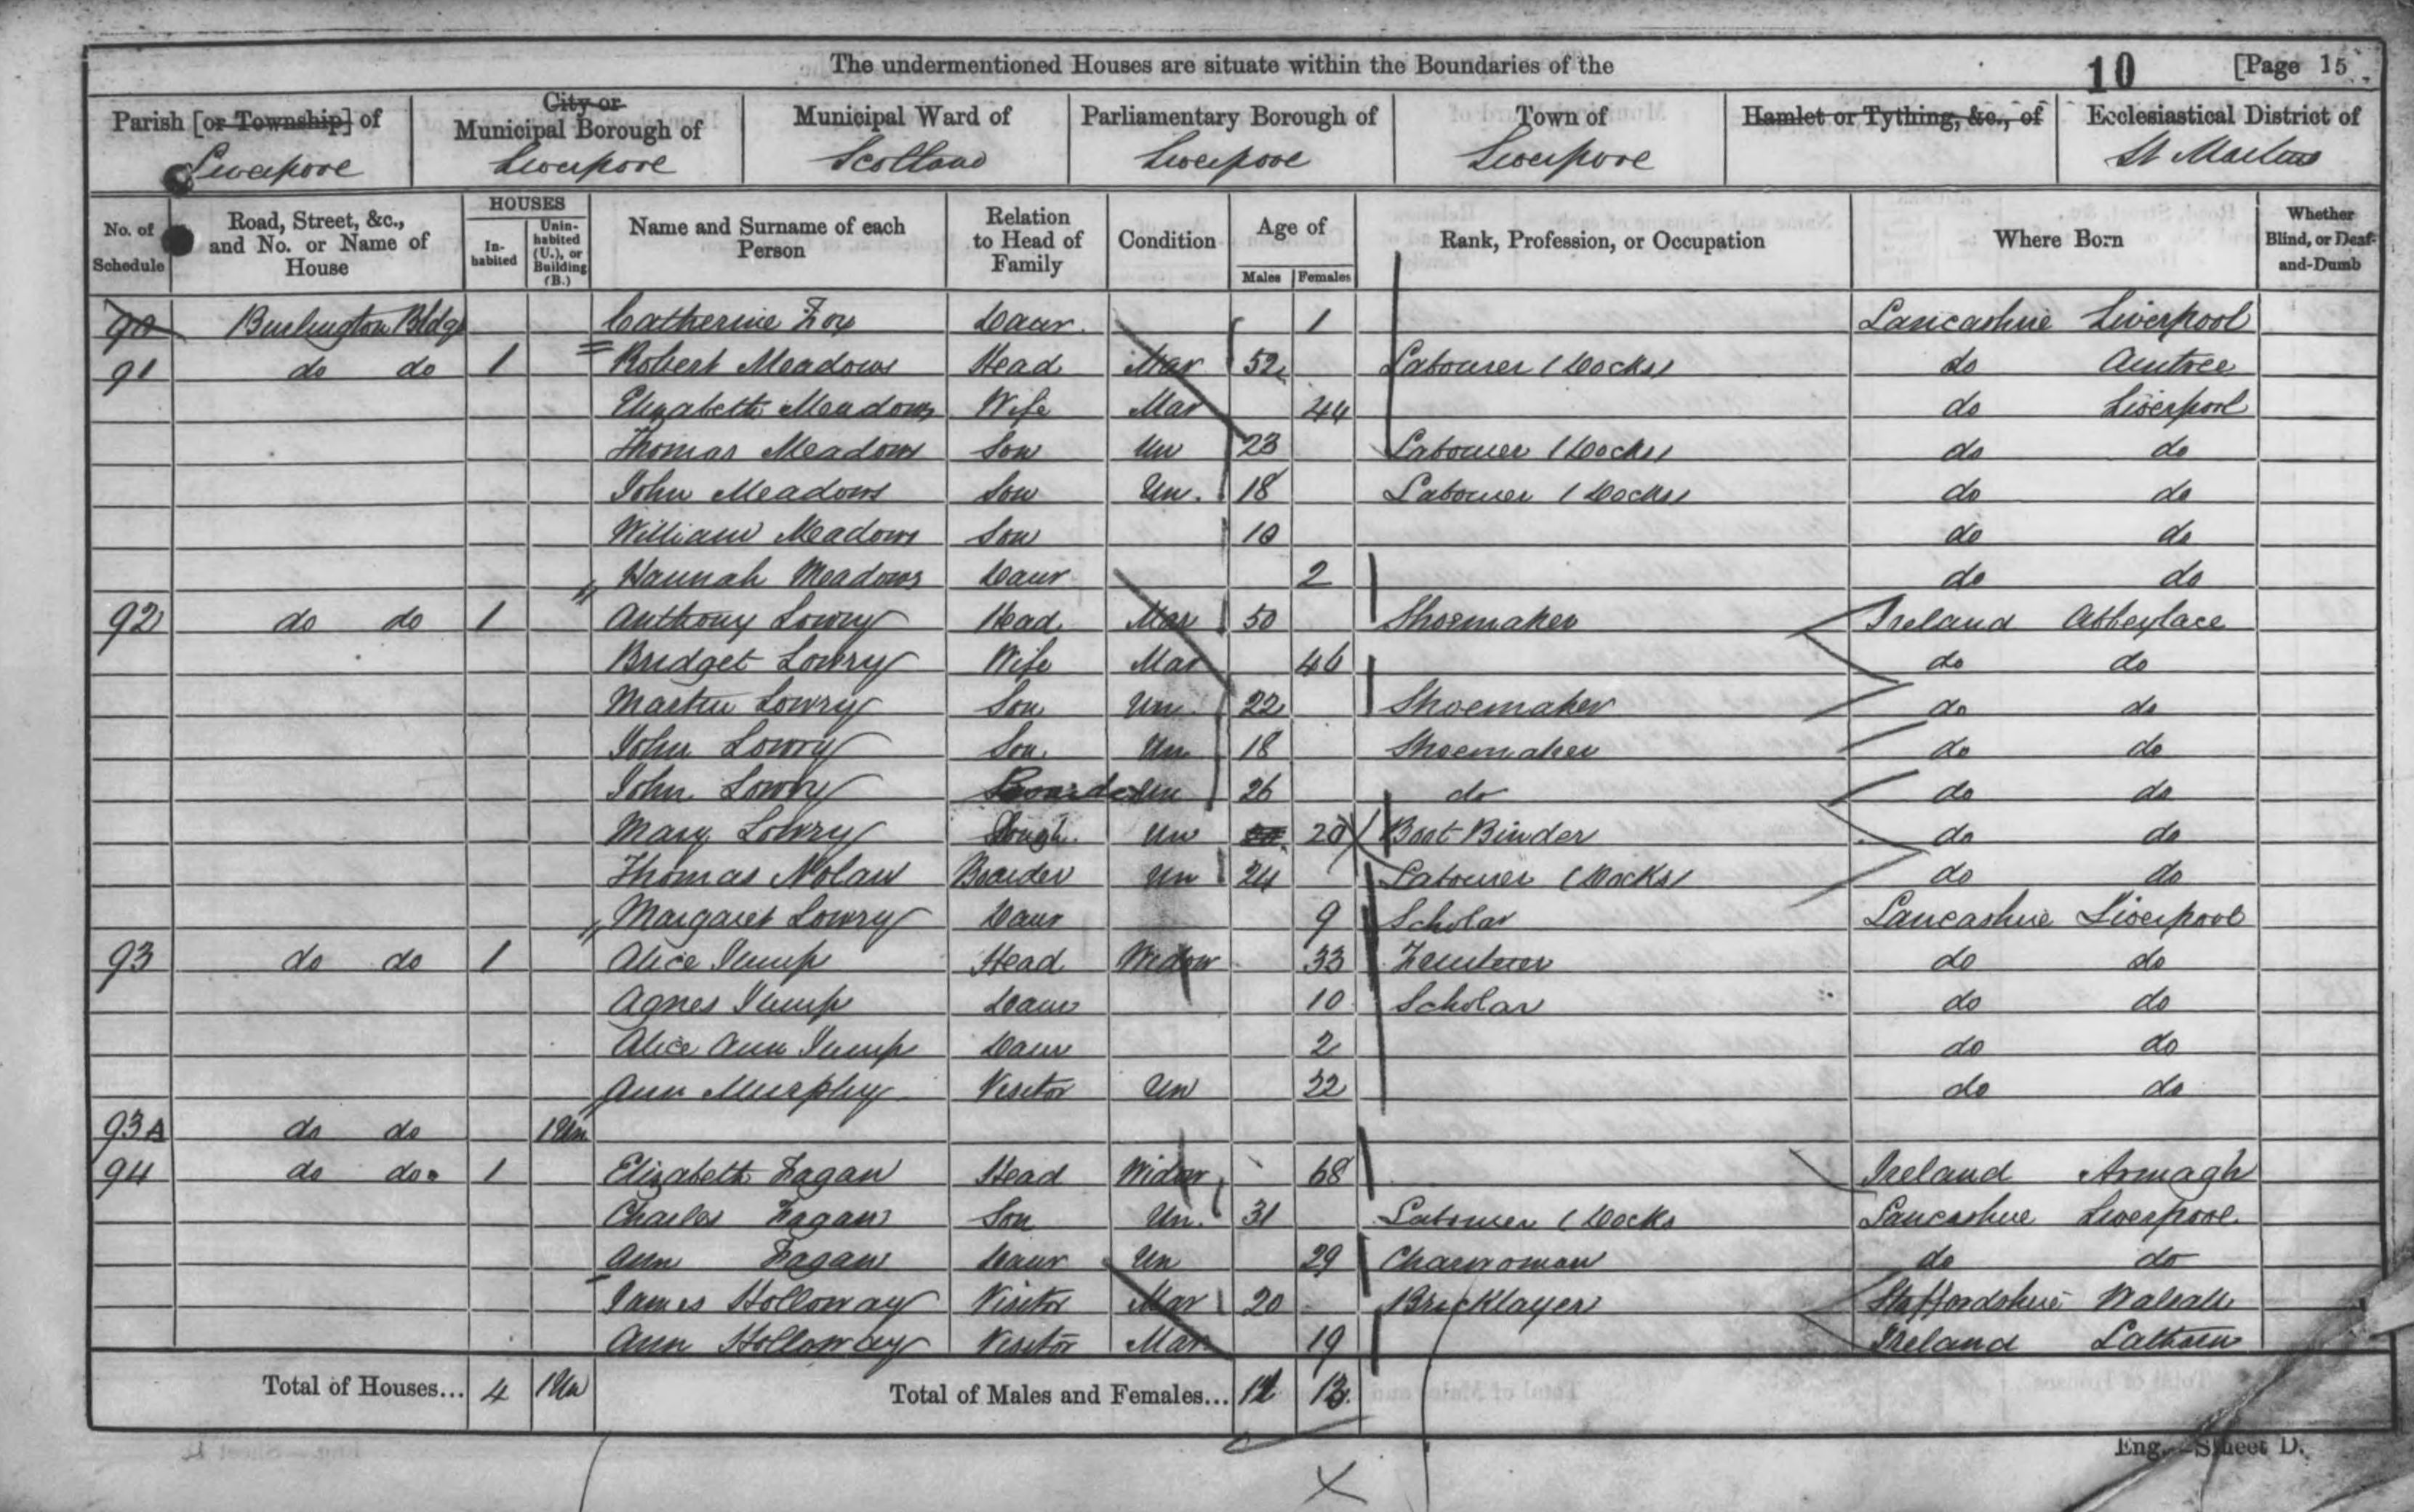 The undermentioned Houses are situate within the Boundaries of the 10 [Page 15
Parish [or Township] of City or Municipal Borough of Municipal Ward of Parliamentary Borough of Town of Hamlet or Tything, &c., of Ecclesiastical District of
Liverpool Liverpool Scotland Liverpool Liverpool St Martins
No. of Schedule Road, Street, &c., and No. or Name of House HOUSES Inhabited Uninhabited (U.), or Building (B.) Name and Surname of each Person Relation to Head of Family Condition Age of Males Females Rank, Profession, or Occupation Where Born Whether Blind, or Deaf-and-Dumb
90 Burlington Bldgs Catherine Foy Daur 1 Lancashire Liverpool
91 do do 1 Robert Meadows Head Mar 52 Labourer (Docks) do Aintree
Elizabeth Meadows Wife Mar 44 do Liverpool
Thomas Meadows Son Un 23 Labourer (Docks) do do
John Meadows Son Un. 18 Labourer (Docks) do do
William Meadows Son 10 do do
Hannah Meadows Daur 2 do do
92 do do 1 Anthony Lowry Head Mar 50 Shoemaker Ireland Abbeylace
Bridget Lowry Wife Mar 46 do do
Martin Lowry Son Un 22 Shoemaker do do
John Lowry Son Un 18 Shoemaker do do
John Lowry Boarder Un 26 do do do
Mary Lowry Daugh. Un 20 Boot Binder do do
Thomas Nolan Boarder Un 24 Labourer (Docks) do do
Margaret Lowry Daur 9 Scholar Lancashire Liverpool
93 do do 1 Alice Jump Head Widow 33 do do
Agnes Jump Daur 10 Scholar do do
Alice Ann Jump Daur 2 do do
Ann Murphy Visitor Un 22 do do
93A do do 1 Un
94 do do 1 Elizabeth Fagan Head Widow 68 Ireland Armagh
Charles Fagan Son Un. 31 Labourer (Docks Lancashire Liverpool
Ann Fagan Daur Un 29 Charwoman do do
James Holloway Visitor Mar 20 Bricklayer Staffordshire Walsall
Ann Holloway Visitor Mar 19 Ireland
Total of Houses... 4 1 Un Total of Males and Females... 12 13
Eng.—Sheet D.